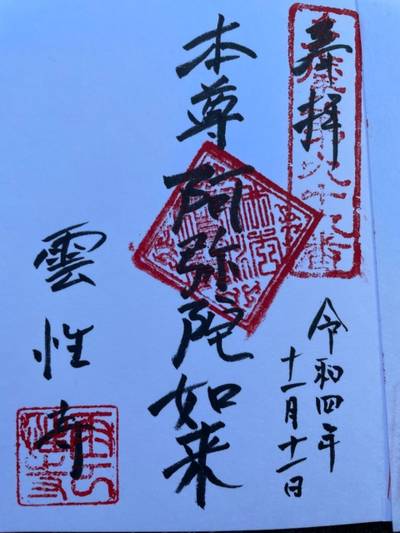 奉拝
令和四年
十一月十一日
本尊阿弥陀如来
雲性寺